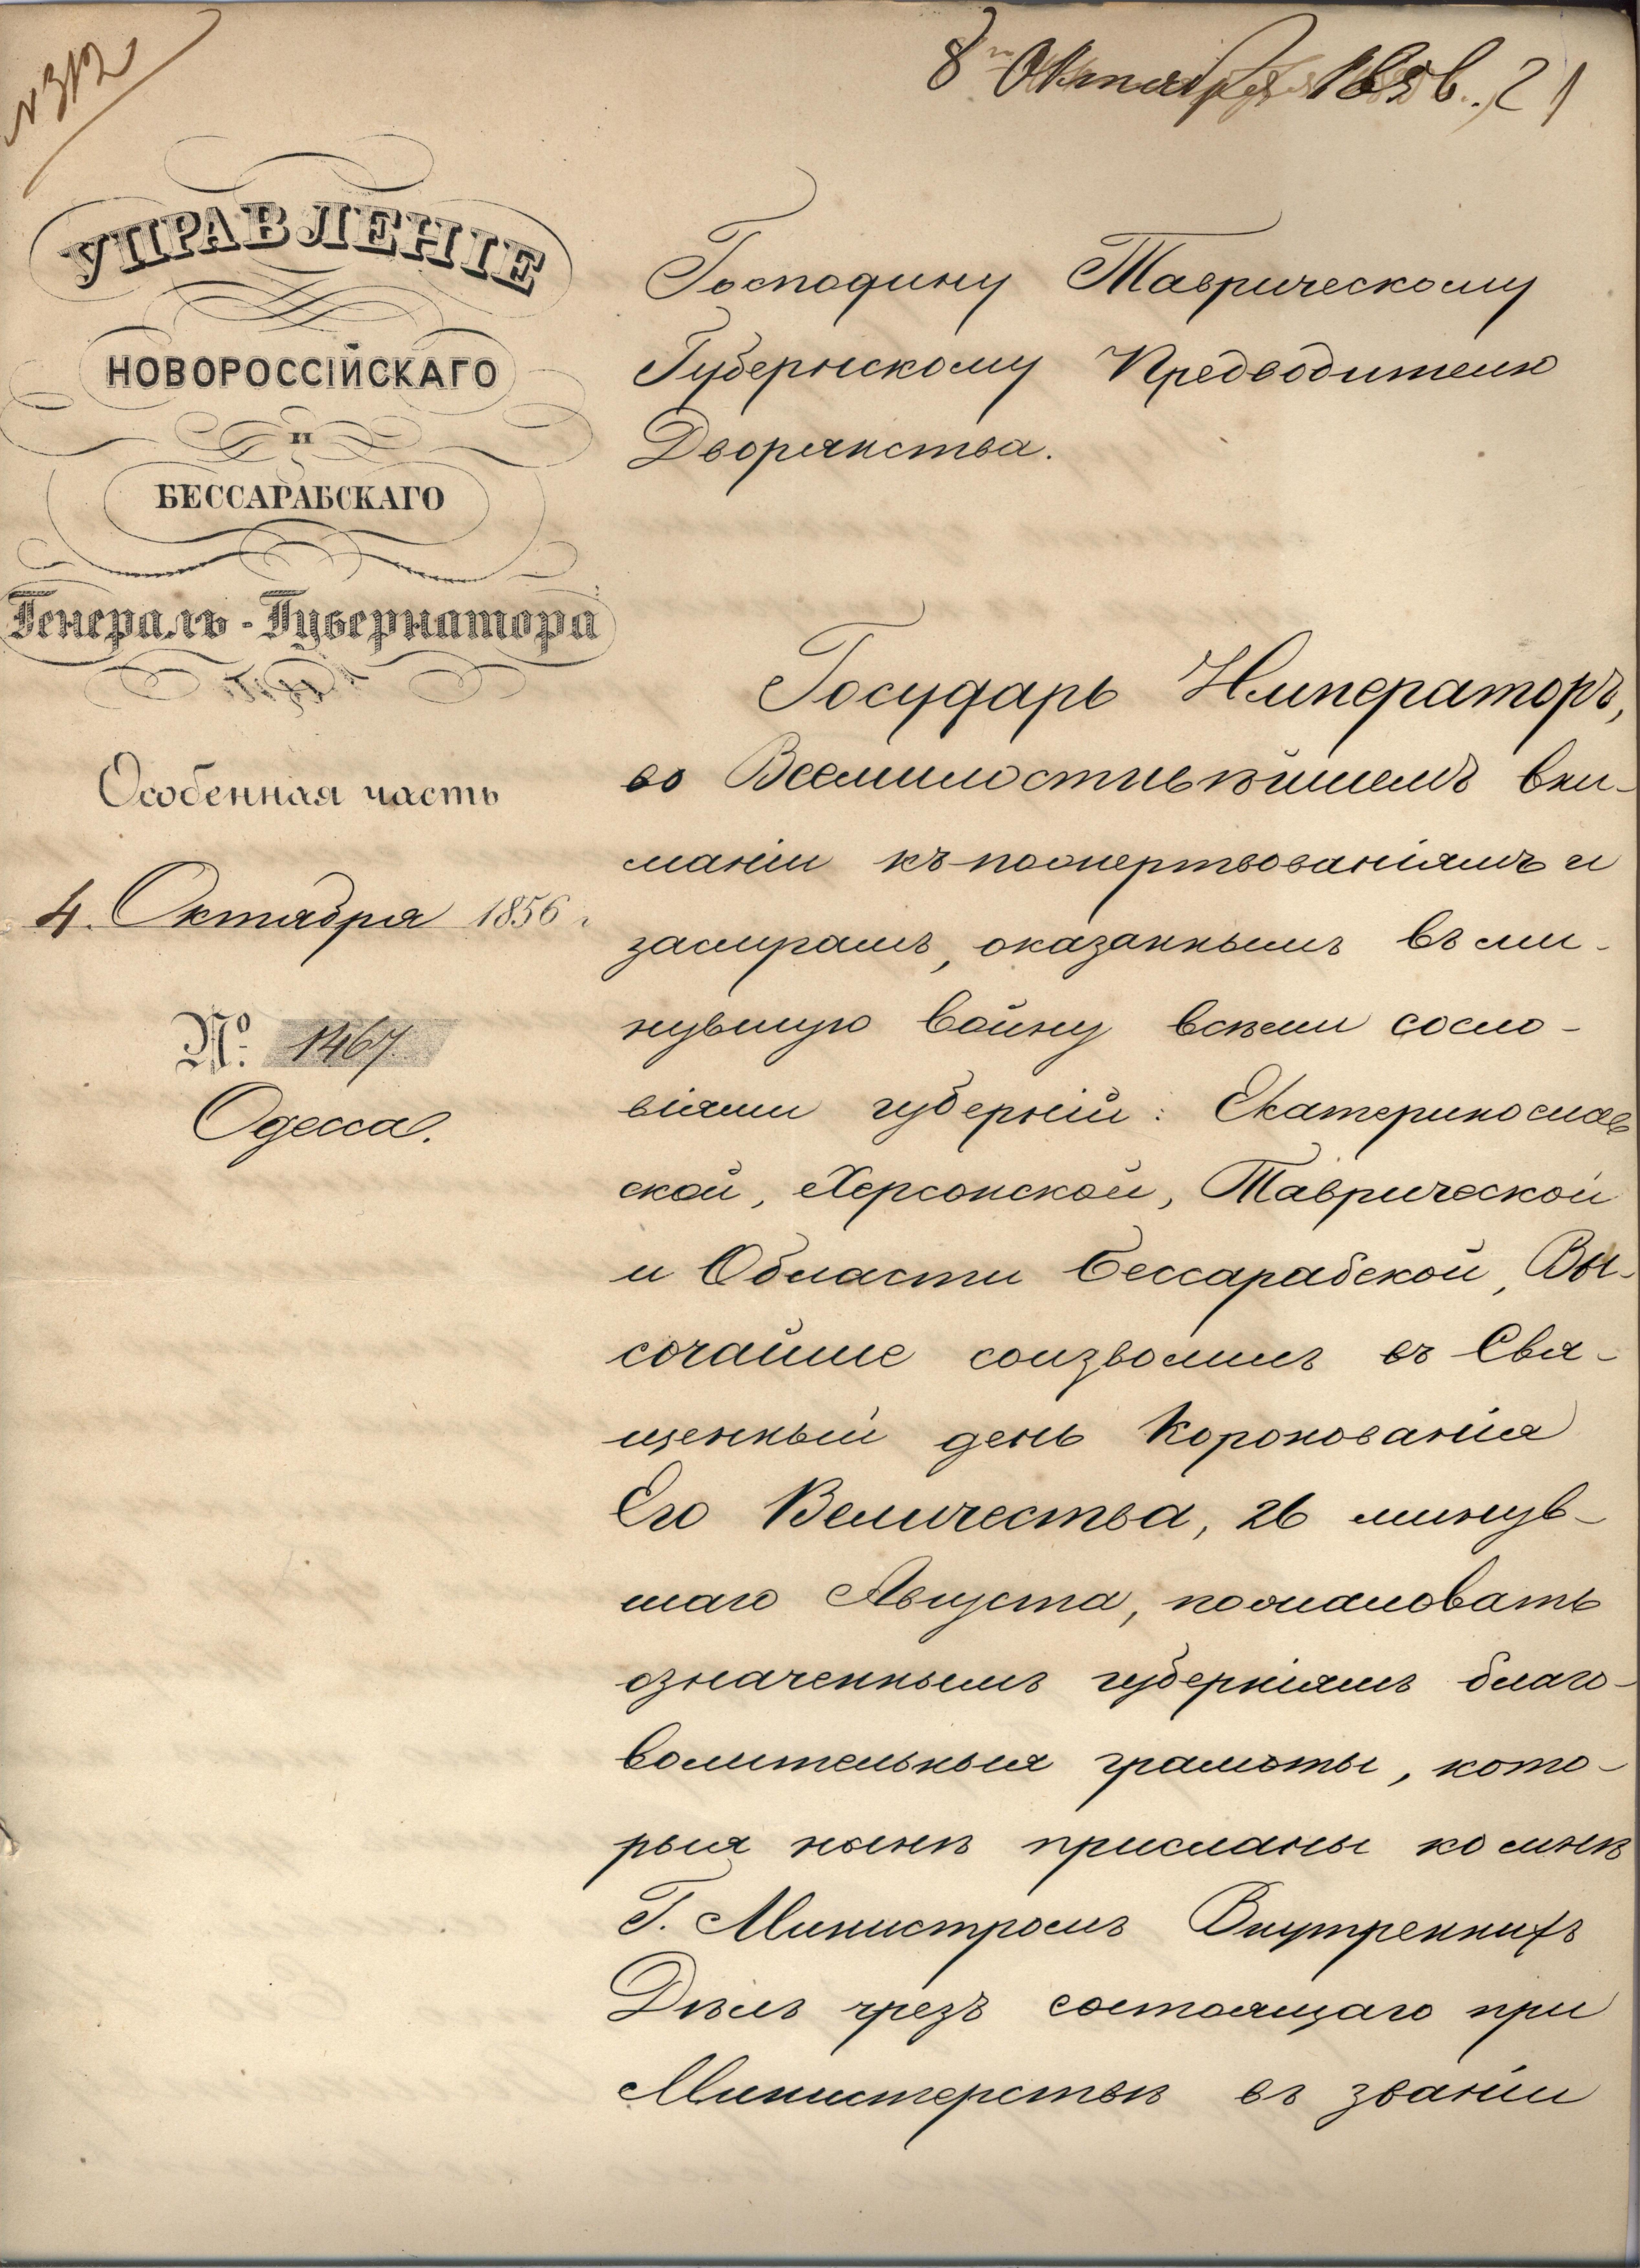 № 312
8го Октября 1856. 21
УПРАВЛЕНІЕ
НОВОРОССІЙСКАГО
И
БЕССАРАБСКАГО
Генералъ-Губернатора
Особенная часть
4. Октября 1856.
№: 1467.
Одесса.
Господину Таврическому
Губернскому Предводителю
Дворянства.
Государь Императоръ,
во Всемилостивѣйшемъ вни-
маніи къ пожертвованіямъ и
заслугамъ, оказаннымъ въ ми-
нувшую войну всѣми сосло-
віями губерній: Екатеринослав
ской, Херсонской, Таврической
и Области Бессарабской, Вы-
сочайше соизволилъ въ Свя-
щенный день Коронованія
Его Величества, 26 минув-
шаго Августа, пожаловать
означеннымъ губерніямъ благо-
волительныя грамоты, кото-
рыя нынѣ присланы ко мнѣ
Г. Министромъ Внутреннихъ
Дѣлъ чрезъ состоящаго при
Министерствѣ въ званіи